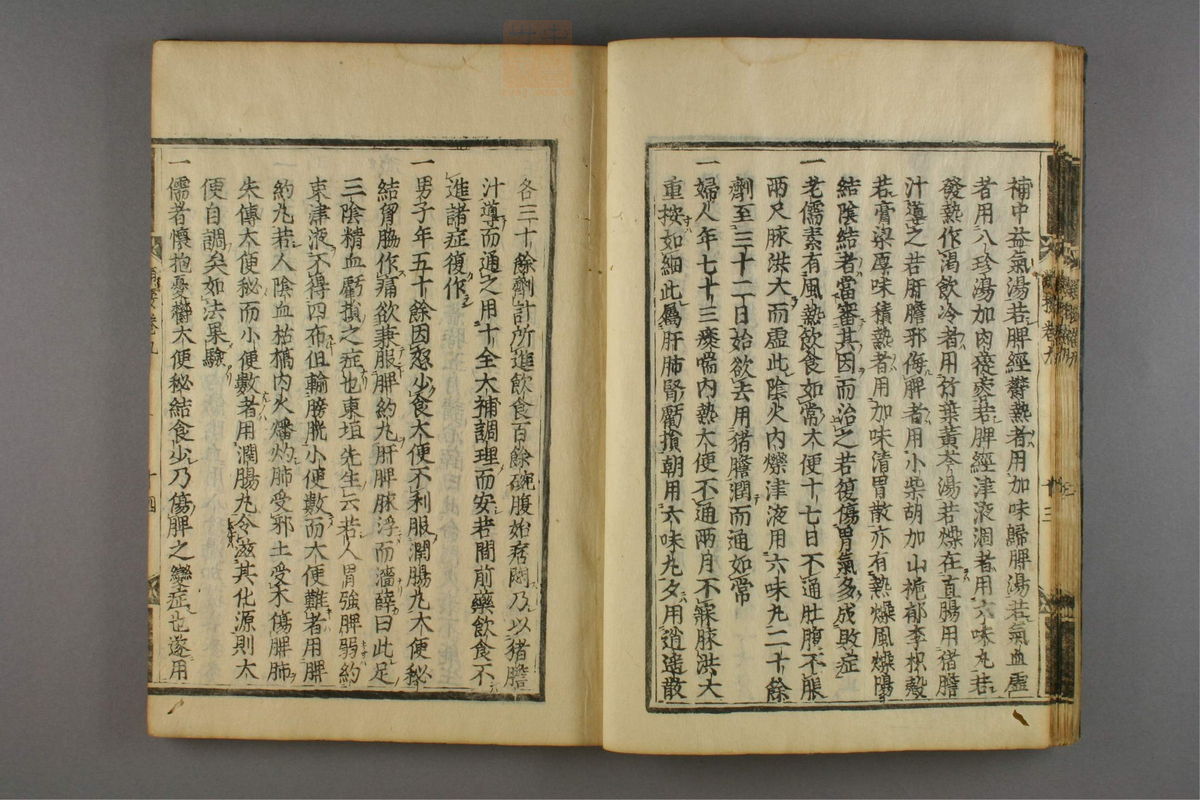 補中益氣湯若脾經鬱熱者用加味歸脾湯若氣血虛
者用八珍湯加肉蓯蓉若脾經津液涸者用六味丸若
發熱作渴飲冷者用竹葉黃芩湯若燥在直腸用猪膽
汁導之若肝膽邪侮脾者用小柴胡加山梔郁李枳殼
若膏梁厚味積熱者用加味清胃散亦有熱燥風燥陽
結陰結者當審其因而治之若復傷胃氣多成敗症
一 老儒素有風熱飲食如常大便十七日不通肚腹不脹
兩尺脉洪大而虛此陰火內爍津液用六味丸二十餘
劑至三十二日始欲去用猪膽潤而通如常
一 婦人年七十三痰喘內熱大便不通兩月不寐脉洪大
重按如細此屬肝肺腎虧損朝用六味丸夕用逍遙散
各三十餘劑計所進飲食百餘碗腹始痞悶乃以猪膽
汁導而通之用十全大補調理而安若間前藥飲食不
進諸症復作
一 男子年五十餘因怒少食大便不利服潤腸丸大便秘
結胷脇作痛欲兼服脾約丸肝脾脉浮而濇薛曰此足
三陰精血虧損之症也東垣先生云若人胃強脾弱約
束津液不得四布但輸膀胱小便數而大便難者用脾
約丸若人陰血枯槁內火燔灼肺受邪土受木傷脾肺
失傳大便秘而小便數者用潤腸丸令滋其化源則大
便自調矣如法果驗
一 儒者懷抱憂鬱大便秘結食少乃傷脾之變症也遂用
十三
十四